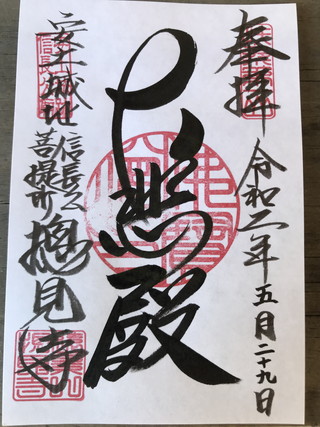 奉拝
令和二年五月二十九日
大悲殿
安土城址
信長公
菩提所
摠見寺